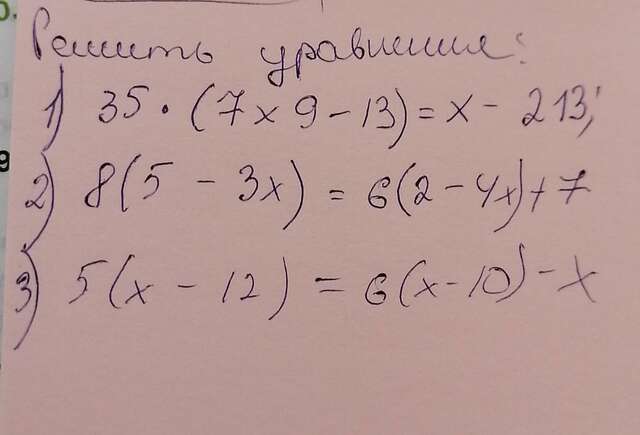 Решить уравнения:
1) 35 · (7 x 9 - 13) = x - 213;
2) 8(5 - 3x) = 6(2 - 4x) + 7
3) 5(x - 12) = 6(x - 10) - x